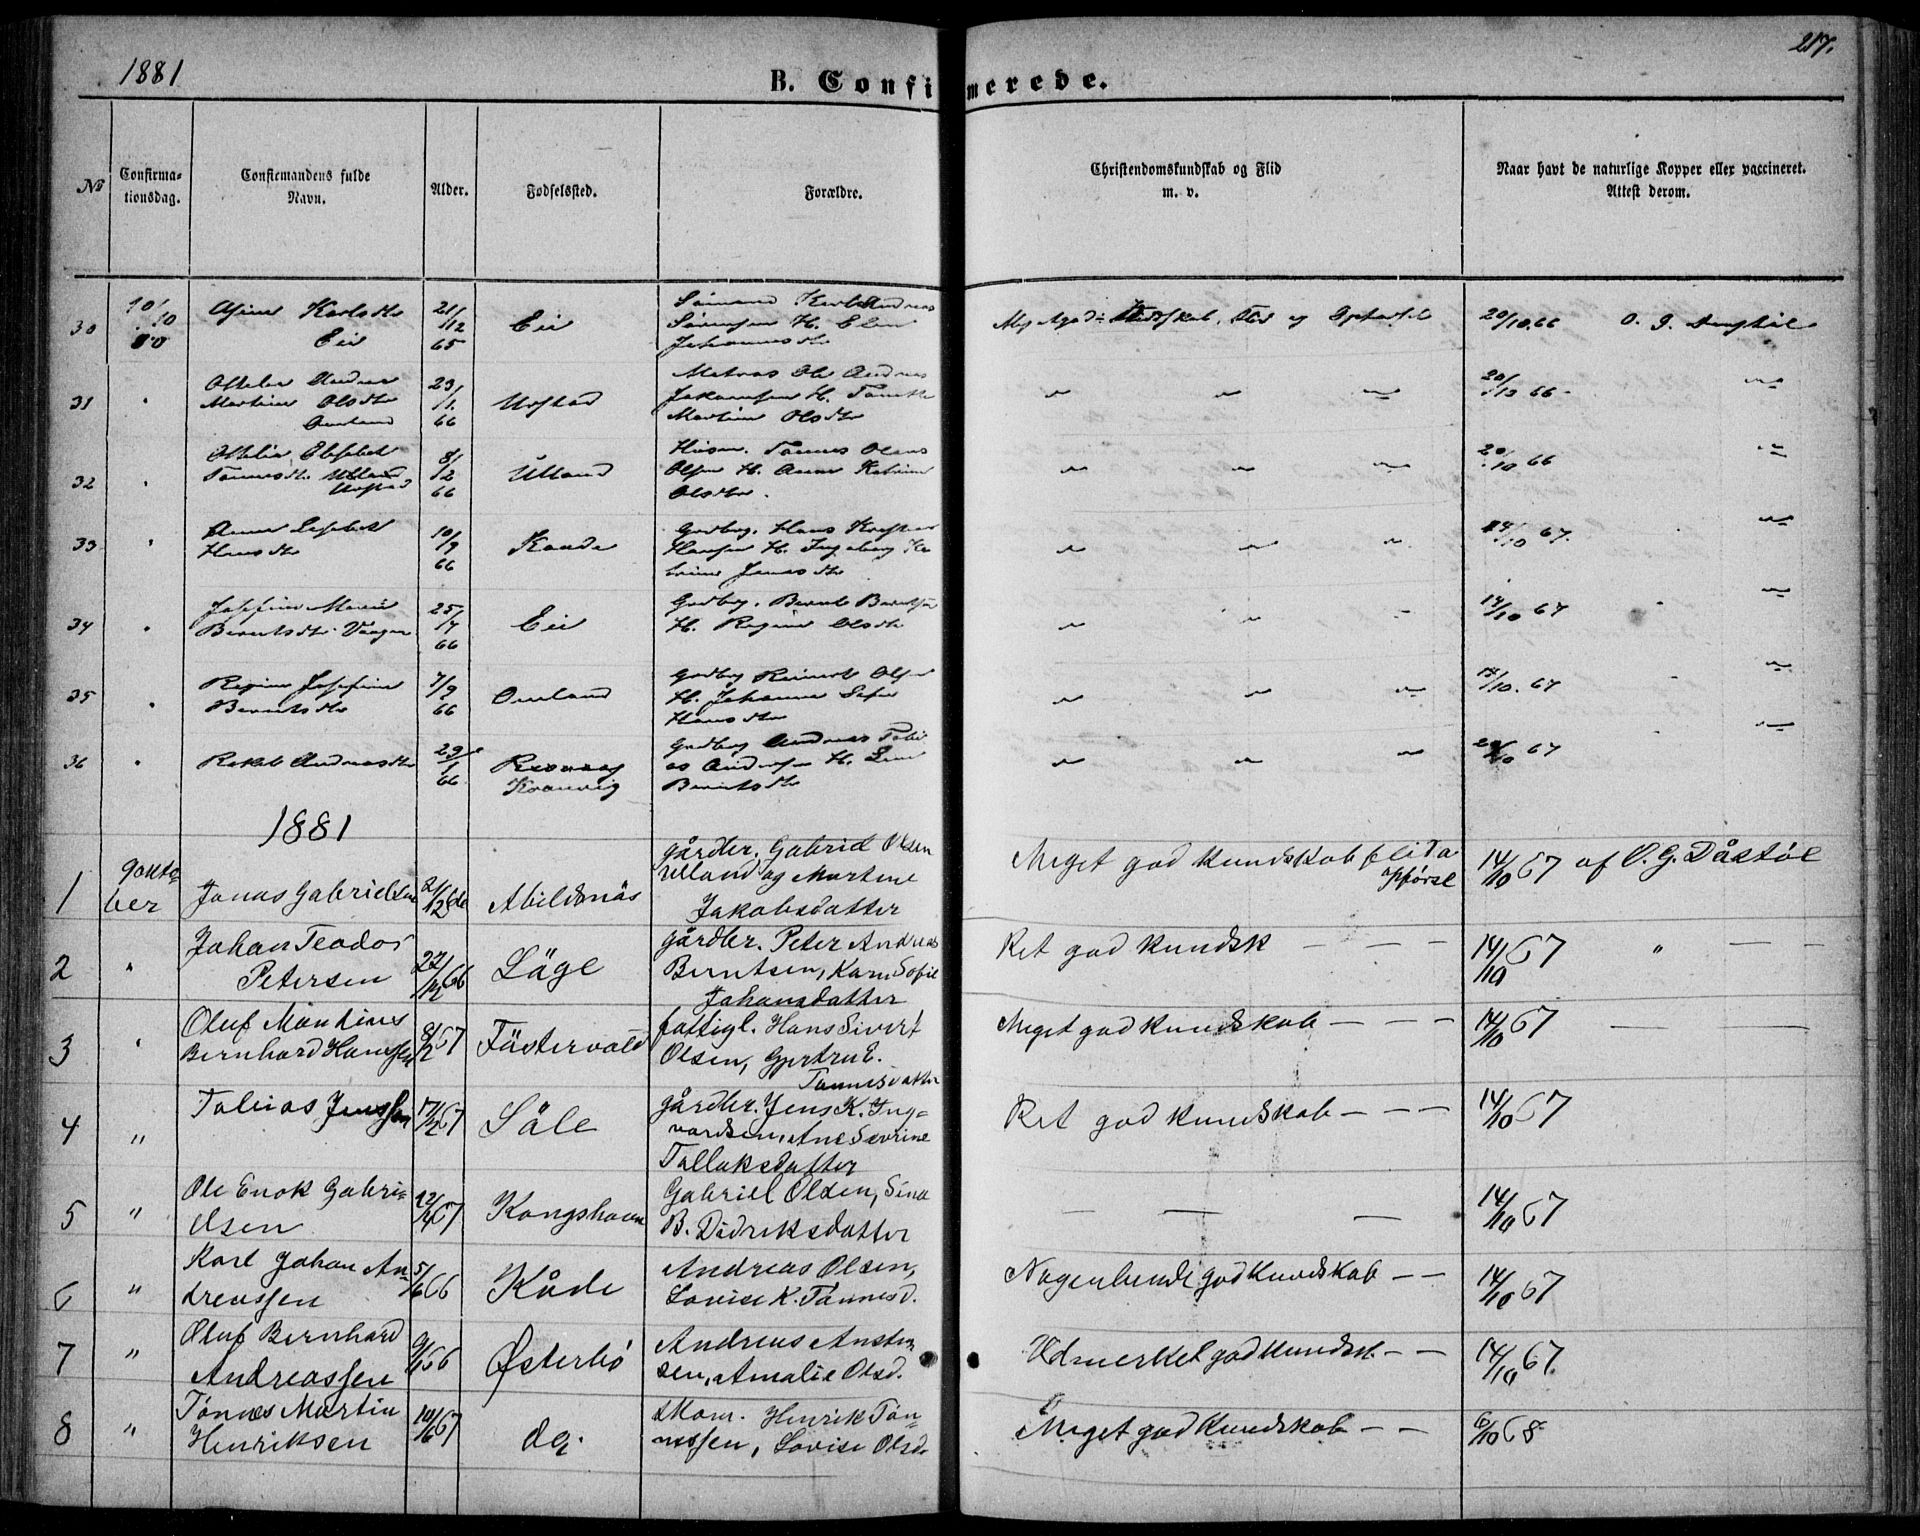 1881
217.
B. Confirmerede.
No
Confirma-
tionsdag.
Confirmandens fulde
Navn.
Alder.
Fødselssted.
Forældre.
Christendomskundskab og Flid
m. v.
Naar havt de naturlige Kopper eller vaccineret.
Attest derom.
30
10/10
Karlsdtr
Eie
21/12 65
Eie
Sømand Karl Andreas
Sørensen H. Elen
Johannesdtr
20/10 66
31
Martine Olsdtr
Omland
23/1 66
Urstad
Matros Ole Andreas
Jakobsen H. Tonette
Martine Olsdtr
20/10 66
32
Otilie Elisabet
Tønnesdtr Ulland
Urstad
8/2 66
Ulland
Husm. Tønnes Olaus
Olsen H. Anne Katrine
Olsdtr.
20/10 66
33
Anne Lisebet
Hansdtr
10/9 66
Kaade
Grdbrg. Hans
Hansen H. Ingeborg Ka
trine Jensdtr
14/10 67.
34
Josefine Marie
Berntsdtr Vaagen
25/7 66
Eie
Grdbrg. Bernt Berntsen
H. Regine Olsdtr
14/10 67
35
Regine Josefine
Berntsdtr
7/9 66
Omland
Grdbrg Reinert Olsen
H. Johanne
Hansdtr
14/10. 67
36
Rakel Andreasdtr
29/1 66
Kvanvig
Grdbrg Andreas Tobi
as Andersen H. Lene
Berntsdtr
67
1881
1
9 okto-
ber
Jonas Gabrielsen
Abildsnäs
gårdbr. Gabriel Olsen
Ulland og Martene
Jakobsdatter
Meget god kundskab flid a
Opførsel
14/10 67 af O. G. Dåstøl
2
"
Johan Teodor
Petersen
22/12 66
Läge
gårdbr. Peter Andreas
Berntsen, Karn Sofie
Johansdatter
Ret god kundsk — — —
14/10 67 " — —
3
"
Oluf Mantines
Bernhard Hanssen
8/2 67
Fästervold
fattigl. Hans Sivert
Olsen, Gjertru E.
Tønnisdatter
Meget god kundskab — — —
14/10 67 — —
4
"
Tobias Jenssen
17/2 67
Säle
gårdbr. Jens K. Ing-
vardsen, Ane Sevrine
Tallaksdatter
Ret god kundskab — — —
14/10 67
5
"
Ole Enok Gabri-
elsen
12/4 67
Kongshavn
Gabriel Olsen, Sina
B. Didriksdatter
— — —
14/10 67
6
"
Karl Johan An-
dreassen
5/6 66
Kåde
Andreas Olsen,
Lovise K. Tønnesd.
Nogenlunde god kundskab — —
14/10 67
7
"
Oluf Bernhard
Andreassen
9/6 66
Østerbø
Andreas Ansten
sen, Amalie Olsd.
Udmerket god kundsk. — —
14/10 67.
8
"
Tønnes Martin
Henriksen
10/6 67
do.
skom. Henrik Tøn-
nessen, Lovise Olsd.
Meget god kundskab — —
6/10 68